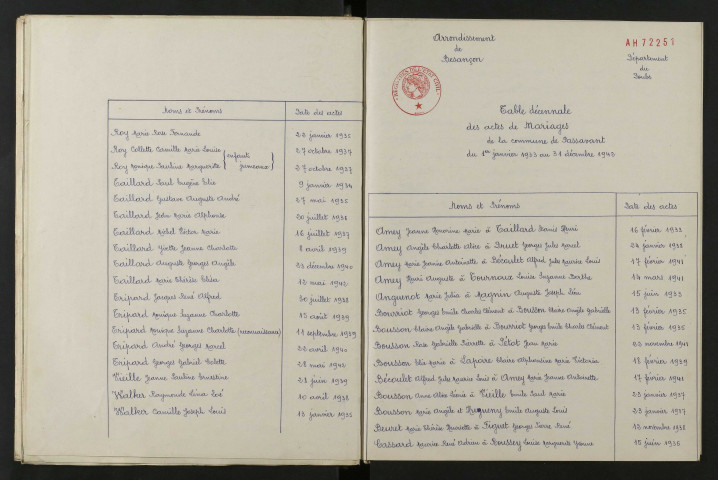 Noms et Prénoms Date des actes
Roy Marie Rose Fernande 22 janvier 1935
Roy Collette Camille Marie Louise 27 octobre 1937
enfants jumeaux
Roy Monique Pauline Marguerite 27 octobre 1937
Taillard Paul Eugène Elie 9 janvier 1934
Taillard Gustave Auguste André 27 mai 1935
Taillard Marie Alphonse 20 juillet 1938
Taillard Michel Marie 16 juillet 1937
Taillard Yvette Jeanne Charlotte 8 avril 1939
Taillard Auguste Georges Angèle 23 décembre 1940
Taillard Marie Thérèse Elisa 12 mai 1942
Tripard Jacques René Alfred 30 juillet 1938
Tripard Monique Suzanne Charlotte 15 août 1939
Tripard Monique Suzanne Charlotte (reconnaissance) 11 septembre 1939
Tripard André Georges Marcel 22 avril 1940
Tripard Georges Gabriel 28 mai 1942
Vieille Jeanne Pauline Ernestine 23 juin 1939
Walker Raymonde 10 avril 1938
Walker Camille Joseph Louis 13 janvier 1935
Arrondissement
de
Besançon
AH 72251
Département
du
Doubs
Table décennale
des actes de Mariages
de la commune de Passavant
du 1er janvier 1933 au 31 décembre 1942
Noms et Prénoms Date des actes
Amey Jeanne à Taillard Henri 16 février 1933
Amey Angèle Charlotte Alice à Druet Georges Jules Marcel 24 janvier 1938
Amey Marie Jeanne Antoinette à Bécoulet Alfred Jules Maurice Louis 17 février 1941
Amey Henri Auguste à Tournoux Louise Suzanne Berthe 14 mars 1941
Anguenot Marie Julia à Magnin Auguste Joseph 15 juin 1933
Bourriot Georges Emile Charles Clément et Bousson Claire Angèle Gabrielle 13 février 1935
Bousson Claire Angèle Gabrielle à Bourriot Georges Emile Charles Clément 13 février 1935
Bousson Rose Gabrielle Pierrette à Petot Jean Marie 22 novembre 1941
Bousson Elie Marie à Lapore Claire Alphonsine Marie Victoria 18 février 1939
Bécoulet Alfred Jules Maurice Louis à Amey Marie Jeanne Antoinette 17 février 1941
Bousson Anne Alice à Vieille Emile Paul Marie 23 janvier 1937
Bousson Marie Angèle et Emile Auguste Louis 23 janvier 1937
Beuret Marie Thérèse Henriette à Georges Pierre René 12 novembre 1938
Cassard Maurice René Adrien à Boussey Louise Marguerite Yvonne 15 juin 1936